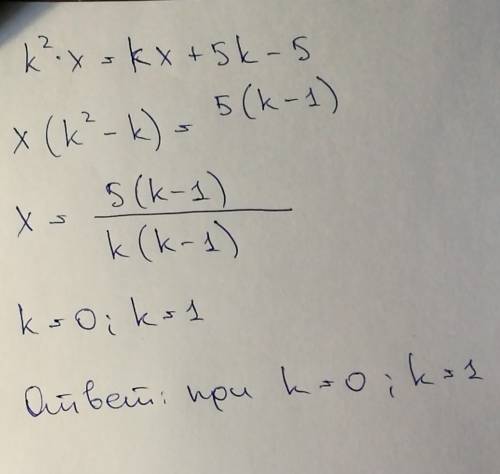 k²·x = kx + 5k - 5
x(k² - k) = 5(k - 1)
x = 5(k-1) / k(k-1)
k = 0; k = 1
Ответ: при k = 0; k = 1